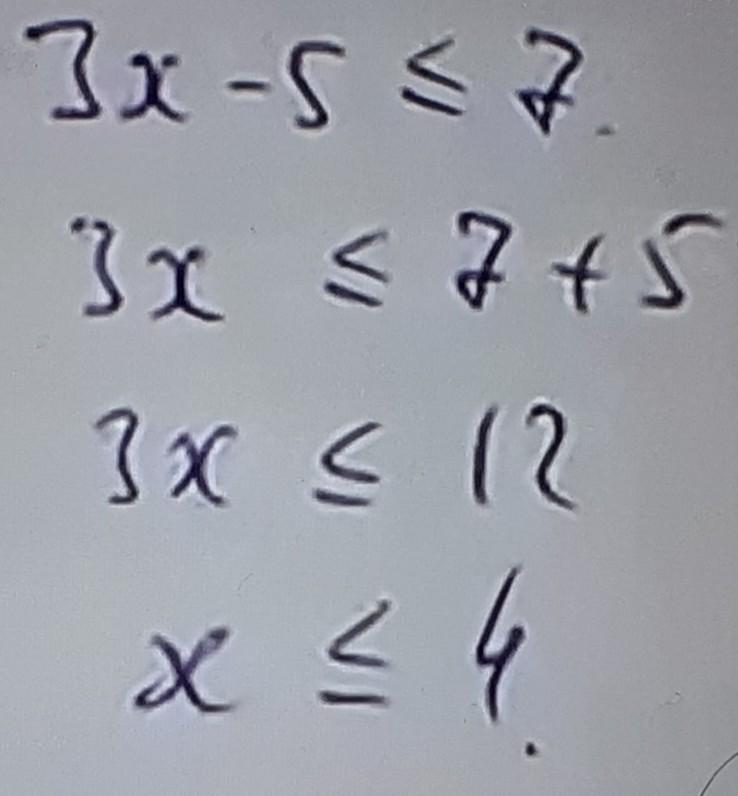 3x - 5 ≤ 7.
3x ≤ 7 + 5
3x ≤ 12
x ≤ 4.